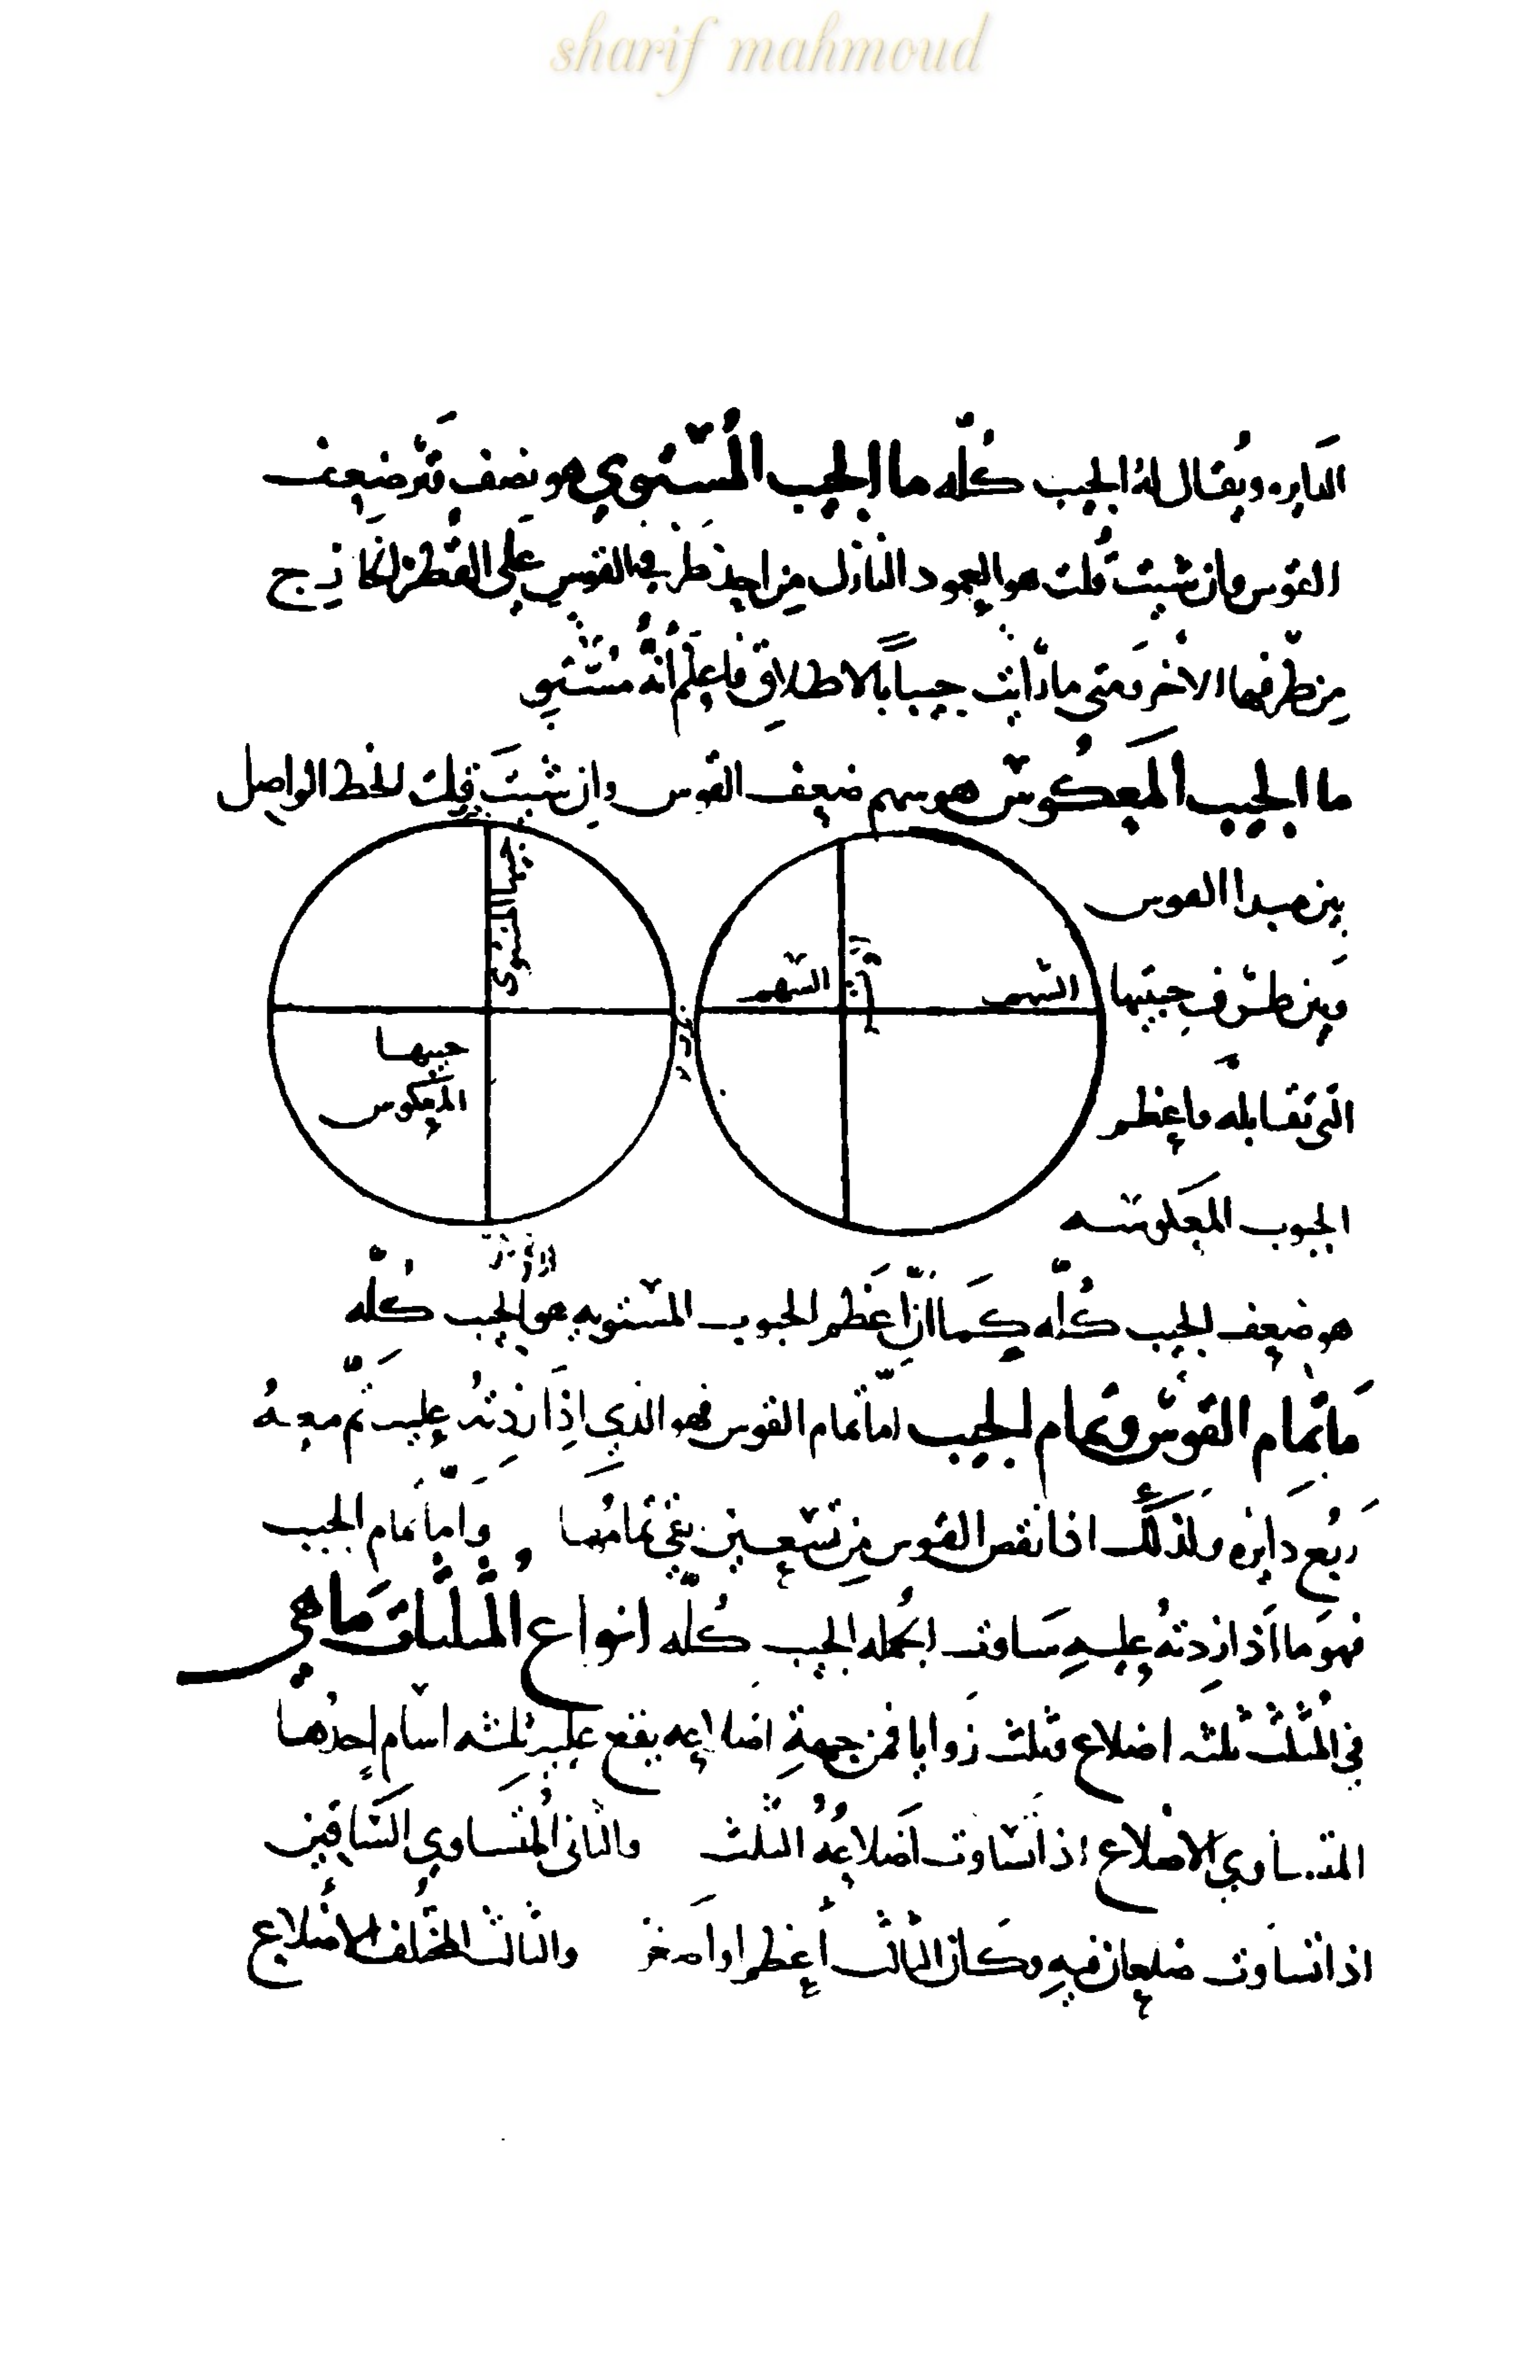 sharif mahmoud
الدايره ويُقال لهُ الجيب كُلّه ما الجيب المُستوي هو نصف وَتر ضعف
القوس وان شيت قُلت هو العمود النازل من احد طرفي القوس عَلى القطر الخارج
من طرفها الاخر ومتى ما رايت جيباً بالاطلاق فاعلم انهُ مُستوٍ
ما الجيب المَعكُوس هو سهم ضعف القوس وان شيتَ قلت الخط الواصل
بين مبدا القوس
وبين طرف جيبها
التي تقابله واعظم
الجيوب المعكوسه
السهم
السهم
جيبها المستوى
جيبها
المعكوس
هو ضعف الجيب كُلّه كَما انّ اعَظم الجيوب المستويه هو الجيب كُلّه
مَا تمام القوس وتمام الجيب امّا تمام القوس فهو الذي اِذَا زدتهُ عليه تم معهُ
رُبع دايره ولذلك اذا نقص القوس من تسعين بقي تمامُها وَامّا تمام الجيب
فهوَ ما اذا زدتهُ عليهِ سَاوت الجُمله الجيب كُلّه انواع المُثلثات مَا هي
في المُثلث ثلثه اضلاع وثلث زَوايا فمن جهةِ اضلاعه يقع عليه ثلثه اقسام احدُها
المتساوي الاضلاع اذا تساوت اَضلاعُهُ الثلث والثاني المُتساوي السّاقين
اذا تساوت ضلعان فيهِ وكَان الثالث اَعظم او اَصغر والثالث المختُلف الاضلاع